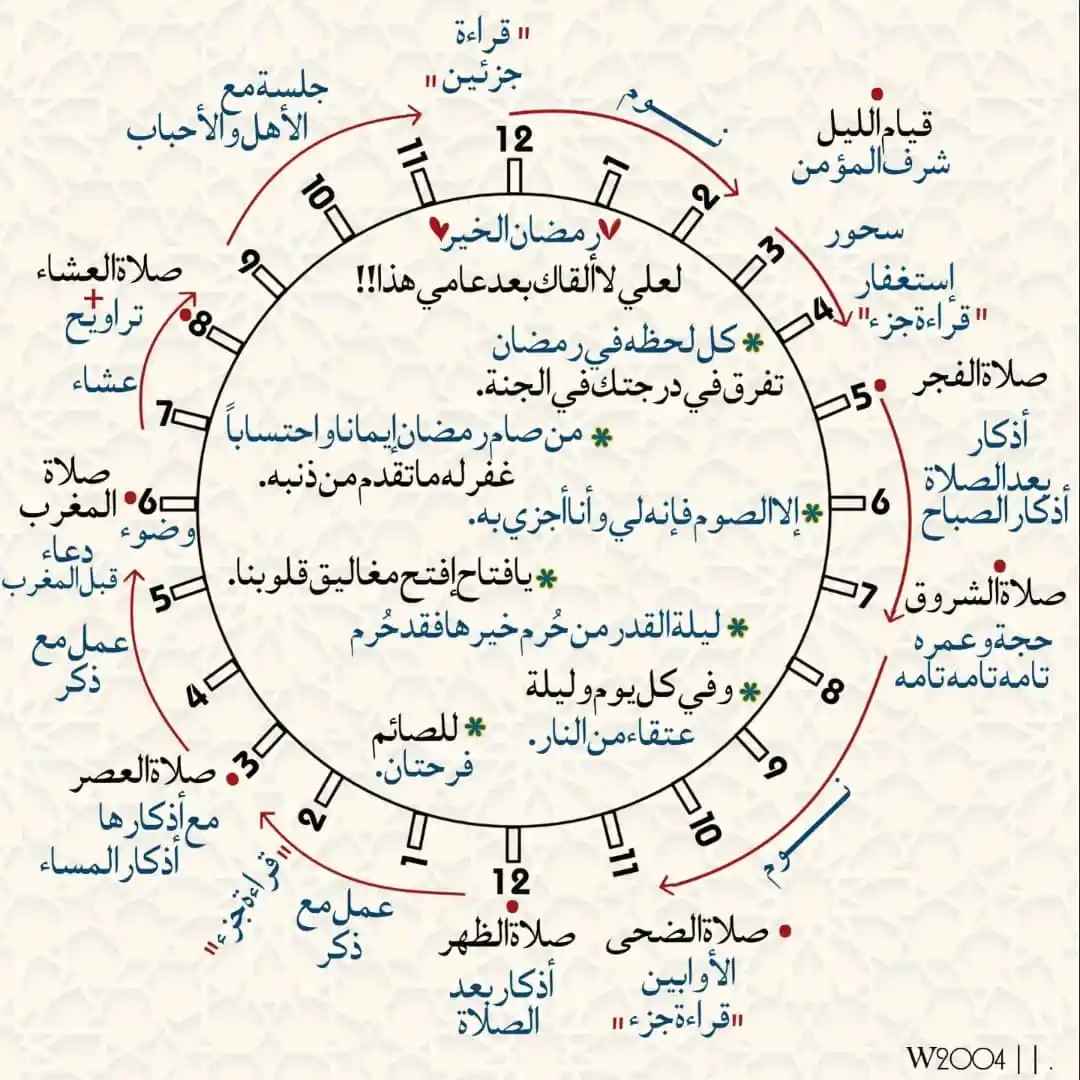 "قراءة
جزئين"
نوم
جلسة مع
الأهل والأحباب
قيام الليل
شرف المؤمن
سحور
إستغفار
"قراءة جزء"
صلاة الفجر
أذكار
بعد الصلاة
أذكار الصباح
صلاة الشروق
حجة وعمره
تامه تامه تامه
نوم
صلاة الضحى
الأوابين
"قراءة جزء"
صلاة الظهر
أذكار بعد
الصلاة
عمل مع
ذكر
"قراءة جزء"
صلاة العصر
مع أذكارها
أذكار المساء
عمل مع
ذكر
دعاء
قبل المغرب
وضوء
صلاة
المغرب
عشاء
صلاة العشاء
+
تراويح
12
1
2
3
4
5
6
7
8
9
10
11
12
1
2
3
4
5
6
7
8
9
10
11
رمضان الخير
لعلي لا ألقاك بعد عامي هذا!!
* كل لحظه في رمضان
تفرق في درجتك في الجنة.
* من صام رمضان إيمانا واحتساباً
غفر له ما تقدم من ذنبه.
* إلا الصوم فإنه لي وأنا أجزي به.
* يافتاح إفتح مغاليق قلوبنا.
* ليلة القدر من حُرم خيرها فقد حُرم
* وفي كل يوم وليلة
عتقاء من النار.
* للصائم
فرحتان.
W2004 || .